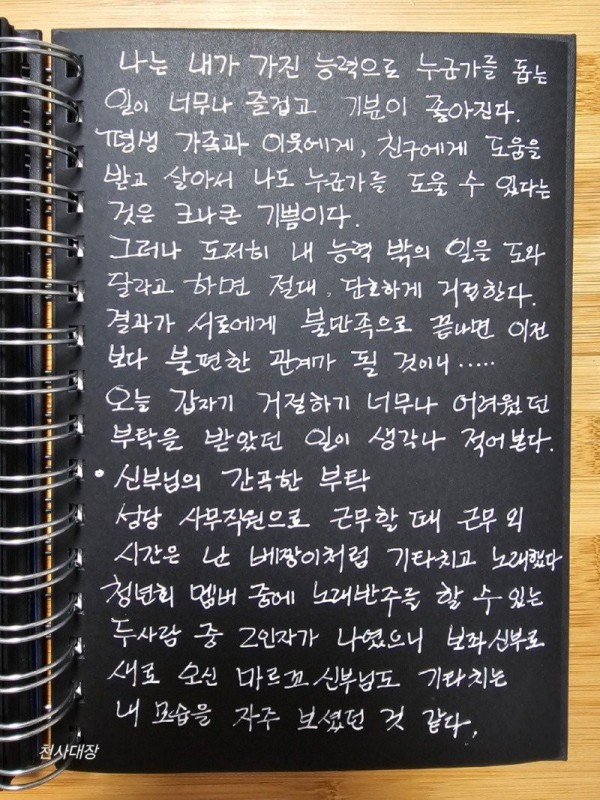 나는 내가 가진 능력으로 누군가를 돕는
일이 너무나 즐겁고 기분이 좋아진다.
평생 가족과 이웃에게, 친구에게 도움을
받고 살아서 나도 누군가를 도울 수 있다는
것은 크나큰 기쁨이다.
그러나 도저히 내 능력 밖의 일을 도와
달라고 하면 절대, 단호하게 거절한다.
결과가 서로에게 불만족으로 끝나면 이전
보다 불편한 관계가 될 것이니.....
오늘 갑자기 거절하기 너무나 어려웠던
부탁을 받았던 일이 생각나 적어본다.
• 신부님의 간곡한 부탁
성당 사무직원으로 근무할 때 근무 외
시간은 난 베짱이처럼 기타치고 노래했다
청년회 멤버 중에 노래반주를 할 수 있는
두사람 중 2인자가 나였으니 보좌신부로
새로 오신 마르꼬 신부님도 기타치는
내 모습을 자주 보셨던 것 같다.
천사대장